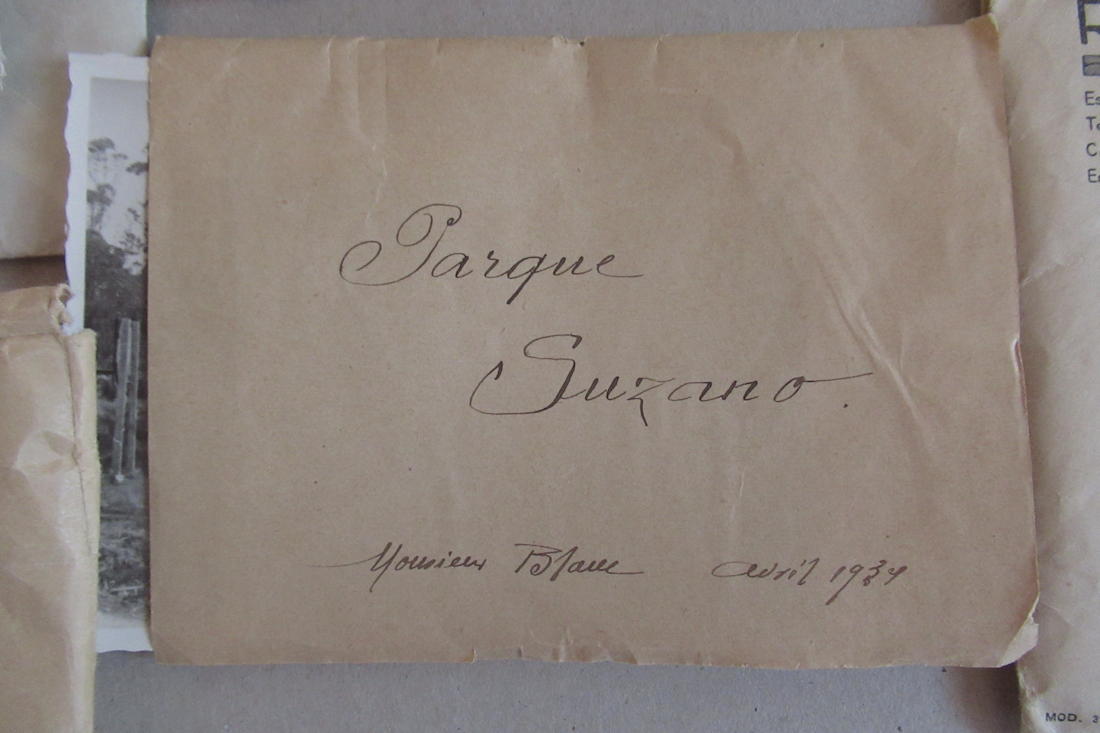 Parque
Suzano.
Monsieur Blanc avril 1934
Es
Te
C
En
MOD. 3